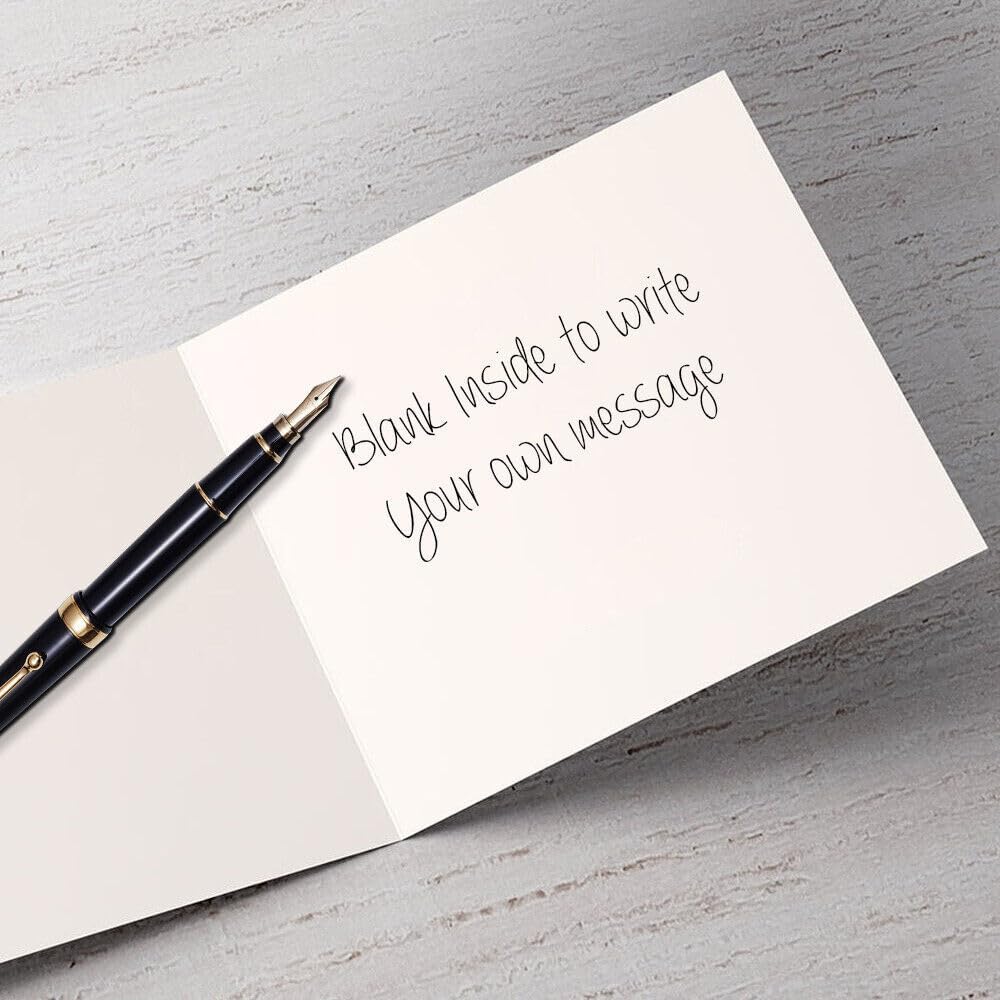 Blank Inside to write
your own message